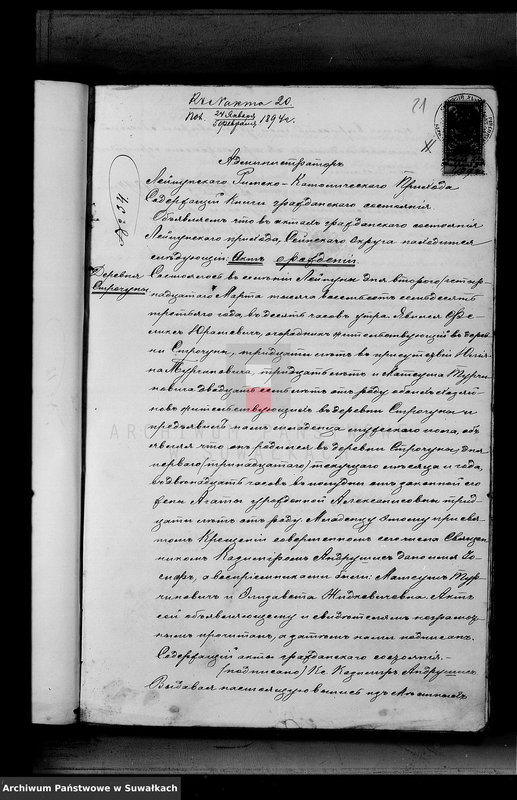 Къ № акта 20.
24 Января
5 Февраля 1894 г.
21
Администраторъ
Лейпунскаго Римско-Католическаго Прихода
Содержащій Книги гражданскаго состоянія
Объявляетъ что въ актахъ гражданскаго состоянія
Лейпунскаго прихода, Сейнскаго Округа находится
слѣдующій: Актъ о рожденіи
Деревня
Строчуны
Состоялось въ селеніи Лейпуны дня втораго/четыр-
надцатаго Марта тысяча восемьсотъ семьдесятъ
третьяго года, въ десять часовъ утра. Явился
Юркевичъ, огородникъ жительствующій въ дерев-
ни Строчуны, тридцати лѣтъ въ присутствіи
тридцати лѣтъ и Матеуша Турчи-
новича двадцати семи лѣтъ отъ роду обоихъ хозяи-
новъ жительствующихъ въ деревни Строчуны и
предъявилъ намъ младенца мужескаго пола, объ-
являя что онъ родился въ деревни Строчуны, дня
перваго/тринадцатаго/ текущаго мѣсяца и года,
въ двѣнадцать часовъ въ полудни отъ законной его
жены Агаты урожденной Александровны трид-
цати лѣтъ отъ роду. Младенцу этому при свя-
томъ Крещеніи совершенномъ сего числа Священ-
никомъ Казимиромъ Андрушисъ дано имя Іо-
сифъ, а воспріемниками были: Матеушъ Тур-
чиновичъ и Елизавета Жидкевичовна. Актъ
сей объявляющему и свидѣтелямъ неграмот-
нымъ прочитанъ, а затѣмъ нами подписанъ.
Содержащій акты гражданскаго состоянія.-
(подписано) Кс. Казимиръ Андрушисъ
Выдавая настоящую выпись изъ
ARCHIWUM PAŃSTWOWE
W SUWAŁKACH
Archiwum Państwowe w Suwałkach